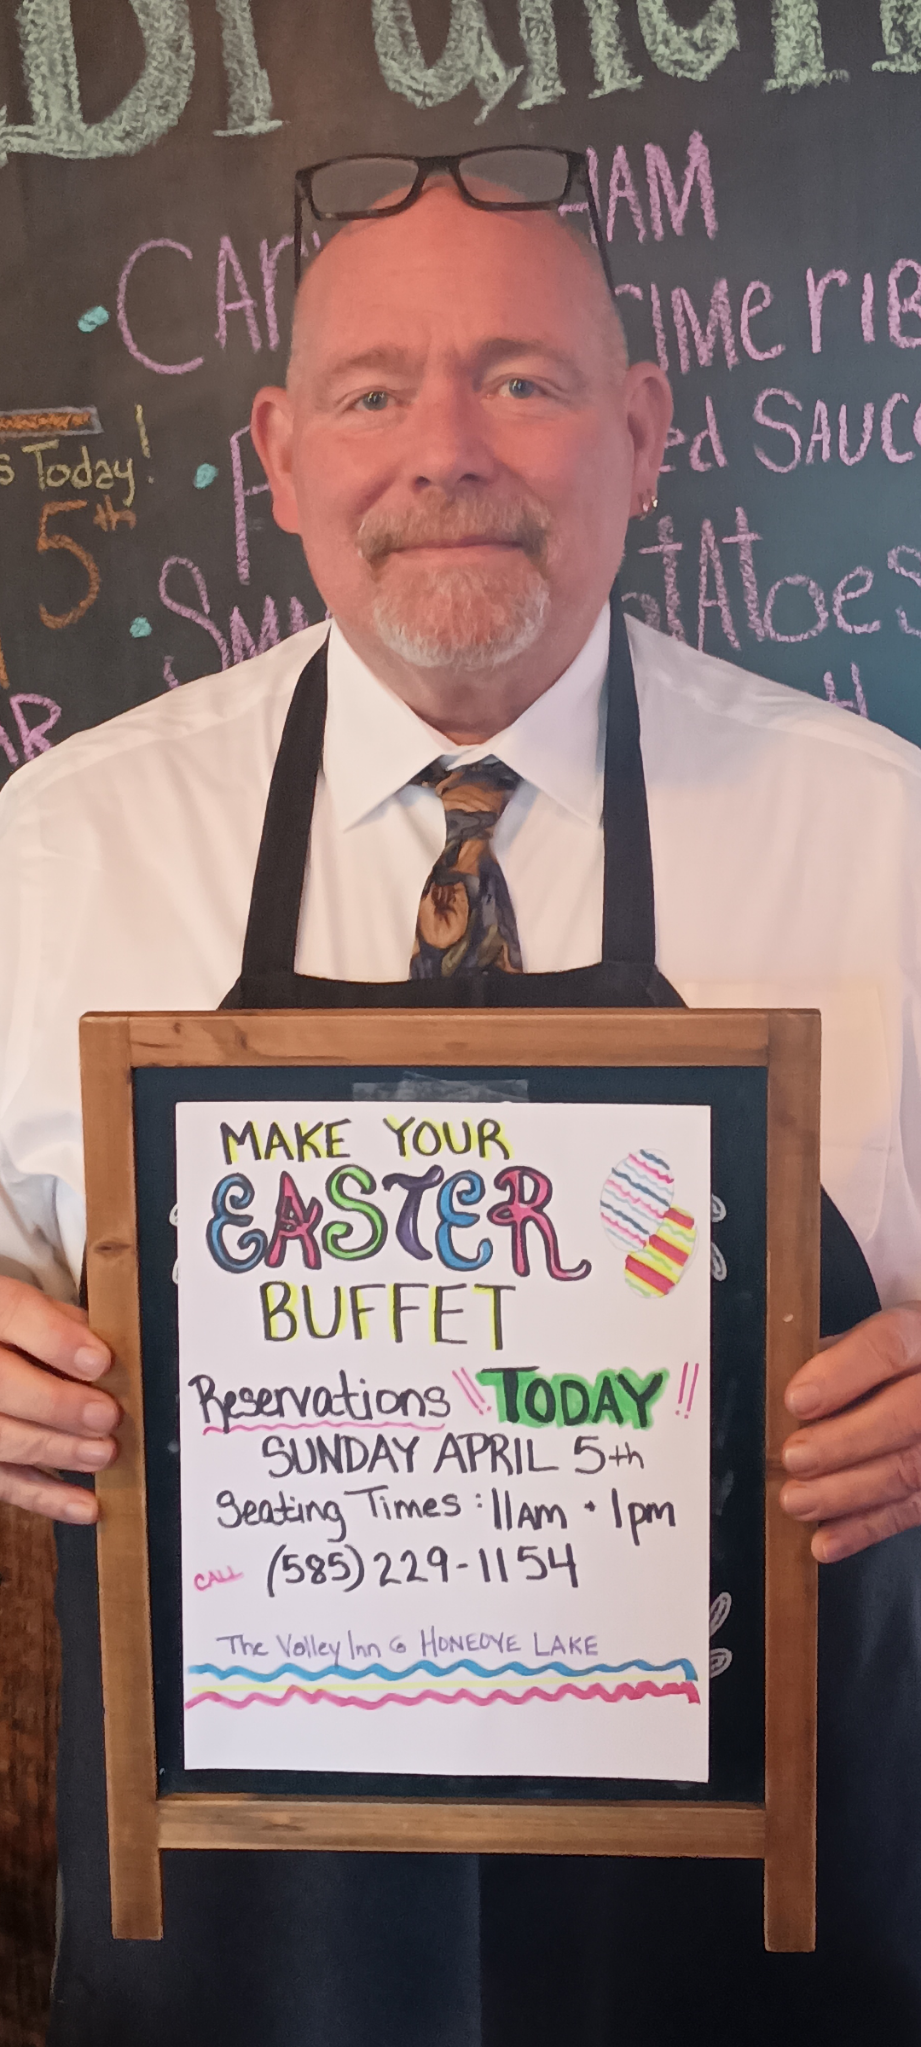 Brunch
HAM
RIME RIB
ed SAUC
s Today!
5th
tATOES
MAKE YOUR
EASTER
BUFFET
Reservations !! TODAY !!
SUNDAY APRIL 5th
Seating Times: 11AM • 1pm
CALL (585) 229-1154
The Valley Inn @ HONEOYE LAKE